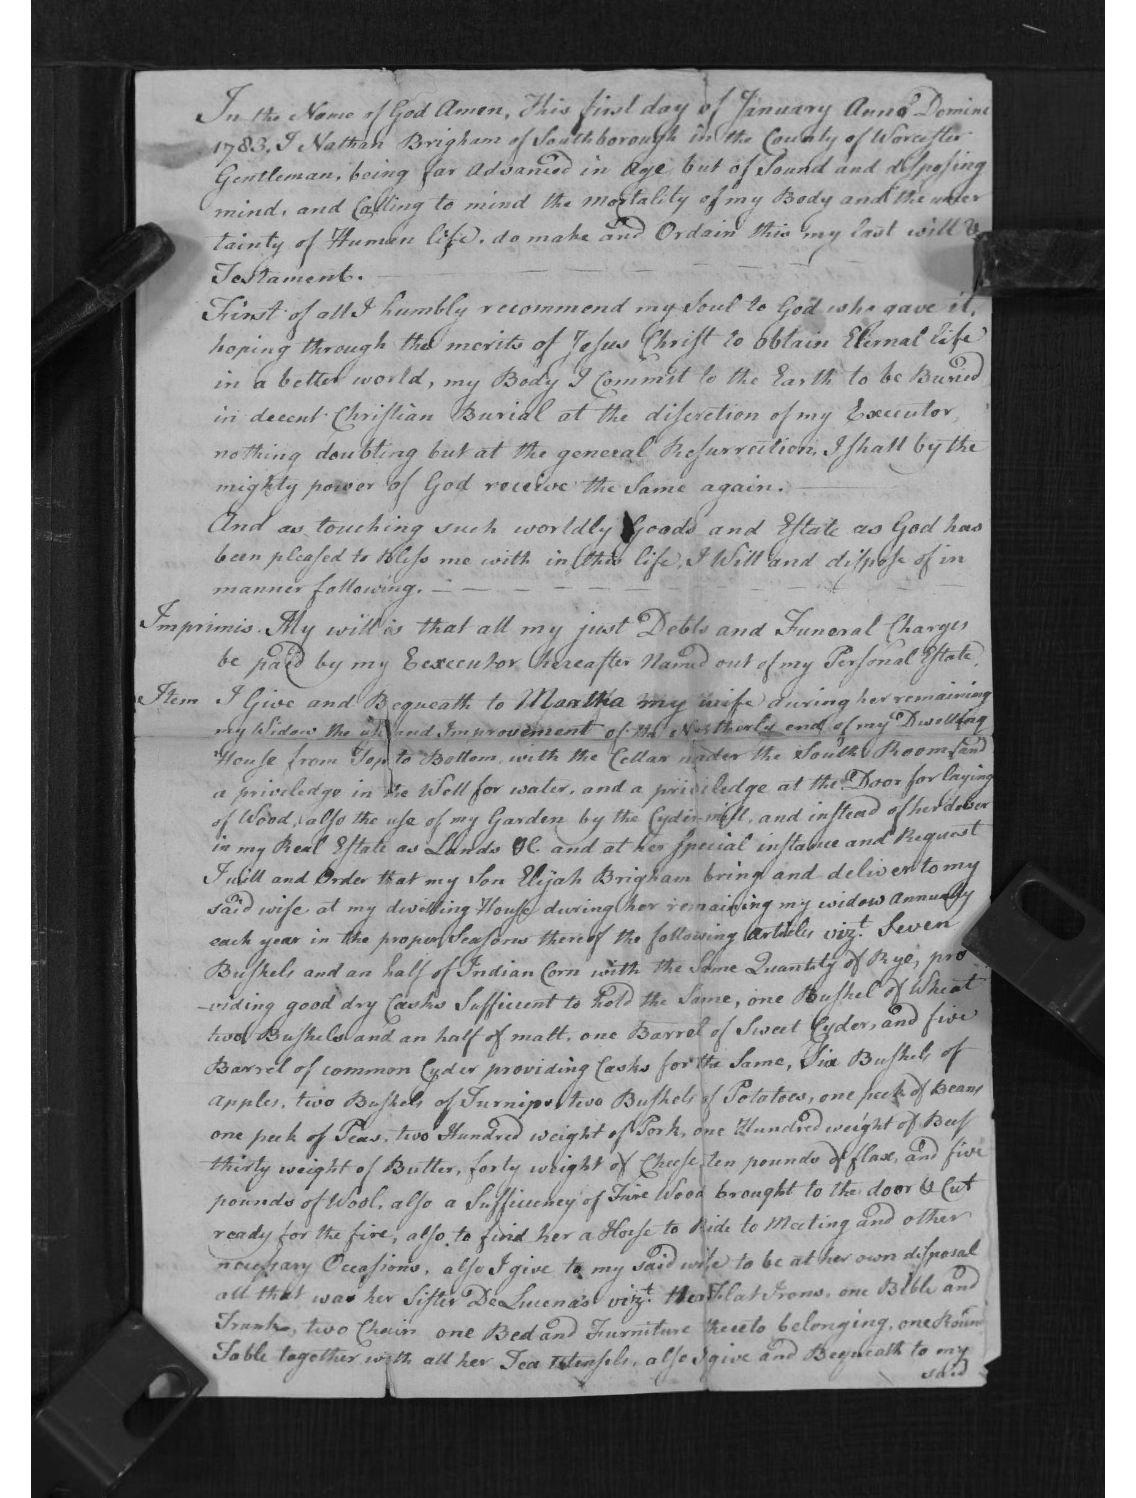 In the Name of God Amen, This first day of January Anno Domini
1783, I Nathan Brigham of Southborough in the County of Worcester
Gentleman, being far advanced in Age but of Sound and disposing
mind, and Calling to mind the mortality of my Body and the uncer
tainty of Human life, do make and Ordain this my last will &
Testament.
First of all I humbly recommend my Soul to God who gave it,
hoping through the merits of Jesus Christ to obtain Eternal life
in a better world, my Body I Commit to the Earth to be Buried
in decent Christian Burial at the discretion of my Executor,
nothing doubting but at the general Resurrection, I shall by the
mighty power of God receive the Same again.
And as touching such worldly Goods and Estate as God has
been pleased to bless me with in this life, I Will and dispose of in
manner following.
Imprimis. My will is that all my just Debts and Funeral Charges
be paid by my Eexecutor hereafter Named out of my Personal Estate.
Item I Give and Bequeath to Martha my wife during her remaining
my Widow the use and Improvement of the Northerly end of my Dwelling
House from Top to Bottom, with the Cellar under the South Room, and
a priviledge in the Well for water, and a priviledge at the Door for laying
of Wood, also the use of my Garden by the Cyder-mill, and instead of her dower
in my Real Estate as Lands &c. and at her special instance and Request
I will and Order that my Son Elijah Brigham bring and deliver to my
said wife at my dwelling House during her remaining my widow annually
each year in the proper Seasons thereof the following articles vizt. Seven
Bushels and an half of Indian Corn with the Same Quantity of Rye, pro
-viding good dry Casks Sufficient to hold the Same, one Bushel of Wheat
two Bushels and an half of malt, one Barrel of Sweet Cyder, and five
Barrel of common Cyder providing Casks for the Same, Six Bushels of
apples, two Bushels of Turnips, two Bushels of Potatoes, one peck of Beans
one peck of Peas, two Hundred weight of Pork, one Hundred weight of Beef
thirty weight of Butter, forty weight of Cheese, ten pounds of flax, and five
pounds of Wool, also a Sufficiency of Fire Wood brought to the door & Cut
ready for the fire, also to find her a Horse to Ride to Meeting and other
necessary Occasions, also I give to my said wife to be at her own disposal
all that was her Sister DeLucena's vizt. Flat Irons, one Bible and
Trunk, two Chairs one Bed and Furniture thereto belonging, one Round
Table together with all her Tea Utensels, also I give and Bequeath to my
said